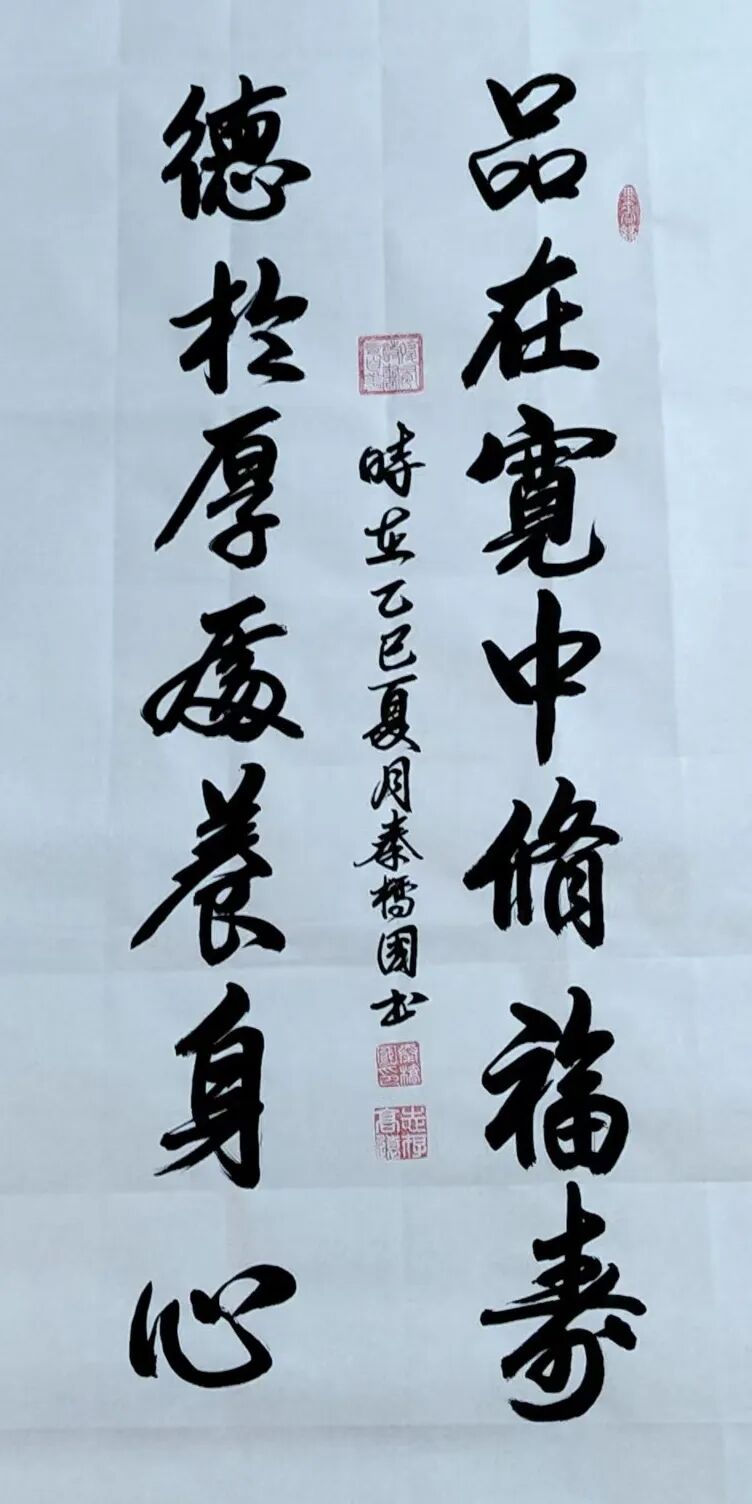 品在寬中脩福壽
德於厚處養身心
時在乙巳夏月秦橋國书